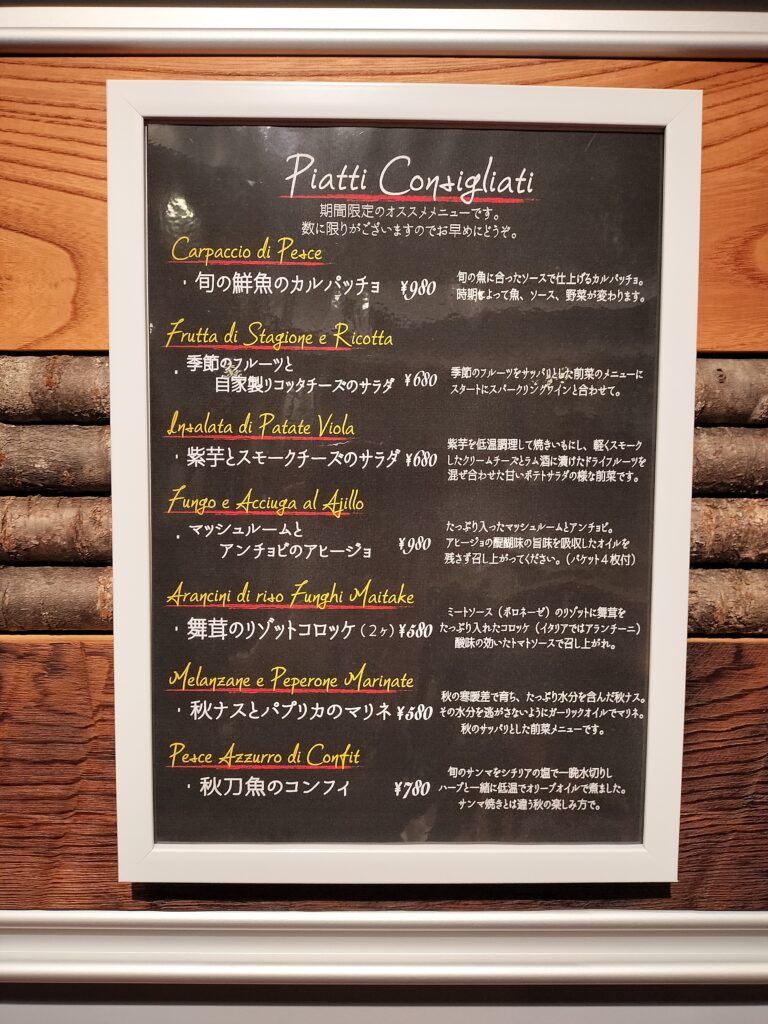 Piatti Consigliati
期間限定のオススメメニューです。
数に限りがございますのでお早めにどうぞ。
Carpaccio di Pesce
・旬の鮮魚のカルパッチョ ¥980
旬の魚に合ったソースで仕上げるカルパッチョ。
時期によって魚、ソース、野菜が変わります。
Frutta di Stagione e Ricotta
・季節のフルーツと
自家製リコッタチーズのサラダ ¥680
季節のフルーツをサッパリとした前菜のメニューに
スタートにスパークリングワインと合わせて。
Insalata di Patate Viola
・紫芋とスモークチーズのサラダ ¥680
紫芋を低温調理して焼きいもにし、軽くスモーク
したクリームチーズとラム酒に漬けたドライフルーツを
混ぜ合わせた甘いポテトサラダの様な前菜です。
Fungo e Acciuga al Ajillo
・マッシュルームと
アンチョビのアヒージョ ¥980
たっぷり入ったマッシュルームとアンチョビ。
アヒージョの醍醐味の旨味を吸収したオイルを
残さず召し上がってください。(バケット4枚付)
Arancini di riso Funghi Maitake
・舞茸のリゾットコロッケ(2ヶ) ¥580
ミートソース(ボロネーゼ)のリゾットに舞茸を
たっぷり入れたコロッケ(イタリアではアランチーニ)
酸味の効いたトマトソースで召し上がれ。
Melanzane e Peperone Marinate
・秋ナスとパプリカのマリネ ¥580
秋の寒暖差で育ち、たっぷり水分を含んだ秋ナス。
その水分を逃がさないようにガーリックオイルでマリネ。
秋のサッパリとした前菜メニューです。
Pesce Azzurro di Confit
・秋刀魚のコンフィ ¥780
旬のサンマをシチリアの塩で一晩水切りし
ハーブと一緒に低温でオリーブオイルで煮ました。
サンマ焼きとは違う秋の楽しみ方で。